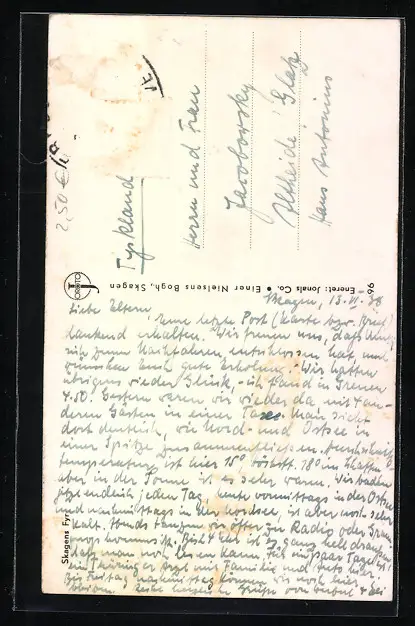 Skagen, 13. VI. 38
Liebe Eltern,
Eure letzte Post (Karte bzw. Brief)
dankend erhalten. Wir freuen uns, daß
sich zum Nachfahren entschlossen hat, und
wünschen Euch gute Erholung. Wir hatten
übrigens wieder Glück, - ich fand in Grenen
4.50. Gestern waren wir wieder da mit 4 an-
deren Gästen in einer Taxe. Man sieht
dort deutlich, wie Nord- und Ostsee in
einer Spitze zusammenfließen.
temperatur ist hier 15° höchst. 18° im Schatten
aber in der Sonne ist es sehr warm. Wir baden
jetzt endlich jeden Tag, vormittags in der Ostsee
und nachmittags in der Nordsee, ist aber noch sehr
kalt. Abends tanzen wir öfter zu Radio oder Gram-
mophonmusik. Bis Uhr ist es ganz hell draußen
daß man noch lesen kann. Für ein paar Tage ist
ein Thüringer Arzt mit Familie und Auto hier.
Bis Freitag nachmittag können wir noch hier
bleiben. herzliche Grüße von
Tyskland
Herrn und Frau
Jacobowsky
Altheide / Glatz
Haus Antonius
2,50 €
Eneret: Jonals Co. • Einer Nielsens Bogh, Skagen
96
Skagens Fyr